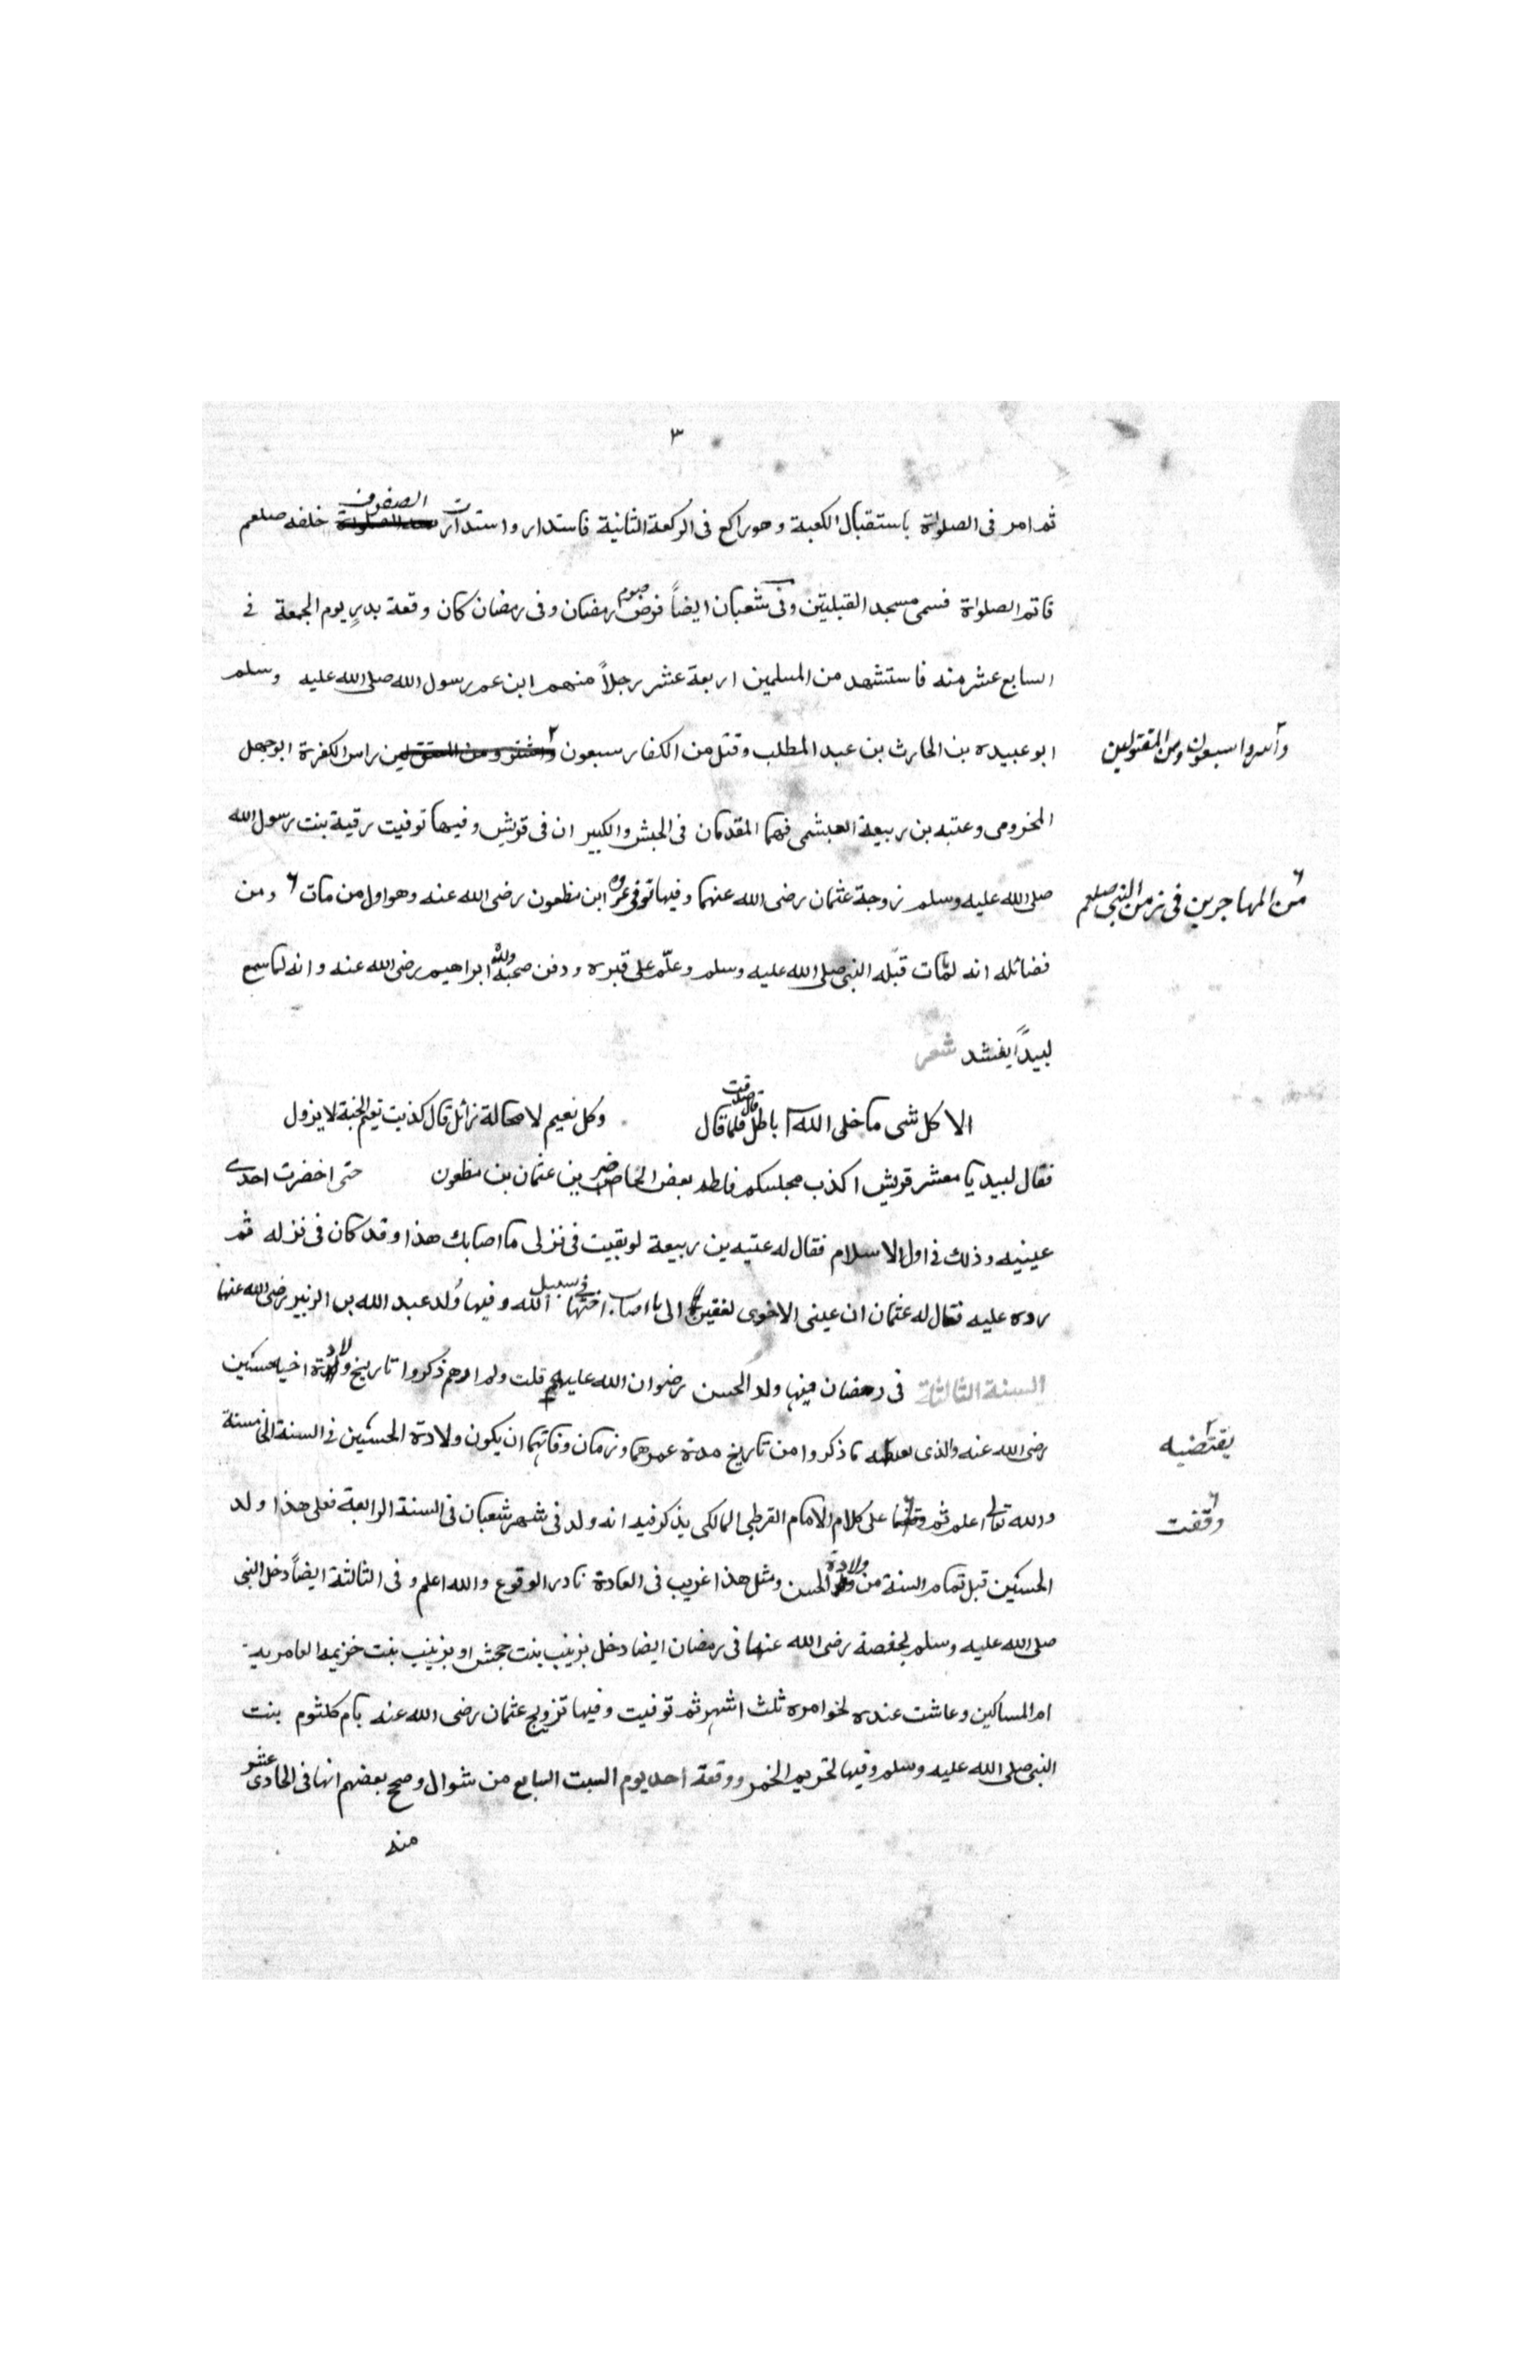 ٣
ثم امر فى الصلواة باستقبال الكعبة وهو راكع فى الركعة الثانية فاستدار واستدارت الصفوف خلفه صلعم
فاتم الصلواة فسمى مسجد القبلتين وفى شعبان ايضاً فرض صوم رمضان وفى رمضان كان وقعة بدرٍ يوم الجمعة فى
السابع عشر منه فاستشهد من المسلمين اربعة عشر رجلاً منهم ابن عم رسول الله صلى الله عليه وسلم
ابو عبيده بن الحارث بن عبد المطلب وقتل من الكفار سبعون راس الكفرة ابو جهل
وأسروا سبعون ومن المقتولين
المخزومى وعتبه بن ربيعة العبشمى فهما المقدمان فى الجيش والكبيران فى قريش وفيها توفيت رقية بنت رسول الله
صلى الله عليه وسلم زوجة عثمان رضى الله عنهما وفيها توفى ابن مظعون رضى الله عنه وهو اول من مات ومن
من المهاجرين فى زمن النبى صلعم
فضائله انه لما مات قبّله النبى صلى الله عليه وسلم وعلّم على قبره ودفن ولده ابراهيم رضى الله عنه وانه لما سمع
لبيداً ينشد شعر
الا كل شى ما خلى الله باطل قال صدقت فلما قال وكل نعيم لا محالة زائل قال كذبت نعيم الجنة لا يزول
فقال لبيد يا معشر قريش اكذب مجلسكم فلطم بعض الحاضرين عثمان بن مظعون حتى اخضرت احدى
عينيه وذلك فى اول الاسلام فقال له عتبه بن ربيعة لو بقيت فى نزلى ما اصابك هذا وقد كان فى نزله ثم
رده عليه فقال له عثمان ان عينى الاخرى لفقيرة الى ما اصاب اختها فى سبيل الله وفيها وُلد عبد الله بن الزبير رضى الله عنهما
السنة الثالثة فى رمضان فيها ولد الحسن رضوان الله عليه قلت ولم ارهم ذكروا تاريخ ولادة اخيه حسين
رضى الله عنه والذى ما ذكروا من تاريخ مدة عمرهما وزمان وفاتهما ان يكون ولادة الحسين فى السنة الخامسة
يقتضيه
والله تعالى اعلم ثم على كلام الامام القرطبى المالكى يذكر فيه انه ولد فى شهر شعبان فى السنة الرابعة فعلى هذا ولد
وقفت
الحسين قبل تمام السنة من ولادة الحسن ومثل هذا غريب فى العادة نادر الوقوع والله اعلم وفى الثالثة ايضاً دخل النبى
صلى الله عليه وسلم بحفصة رضى الله عنها فى رمضان ايضا دخل بزينب بنت جحش او بزينب بنت خزيمه العامرية
ام المساكين وعاشت عنده ثلث اشهر ثم توفيت وفيها تزويج عثمان رضى الله عنه بام كلثوم بنت
النبى صلى الله عليه وسلم وفيها تحريم الخمر ووقعة احد يوم السبت السابع من شوال وصح بعضهم انها فى الحادى عشر
منه